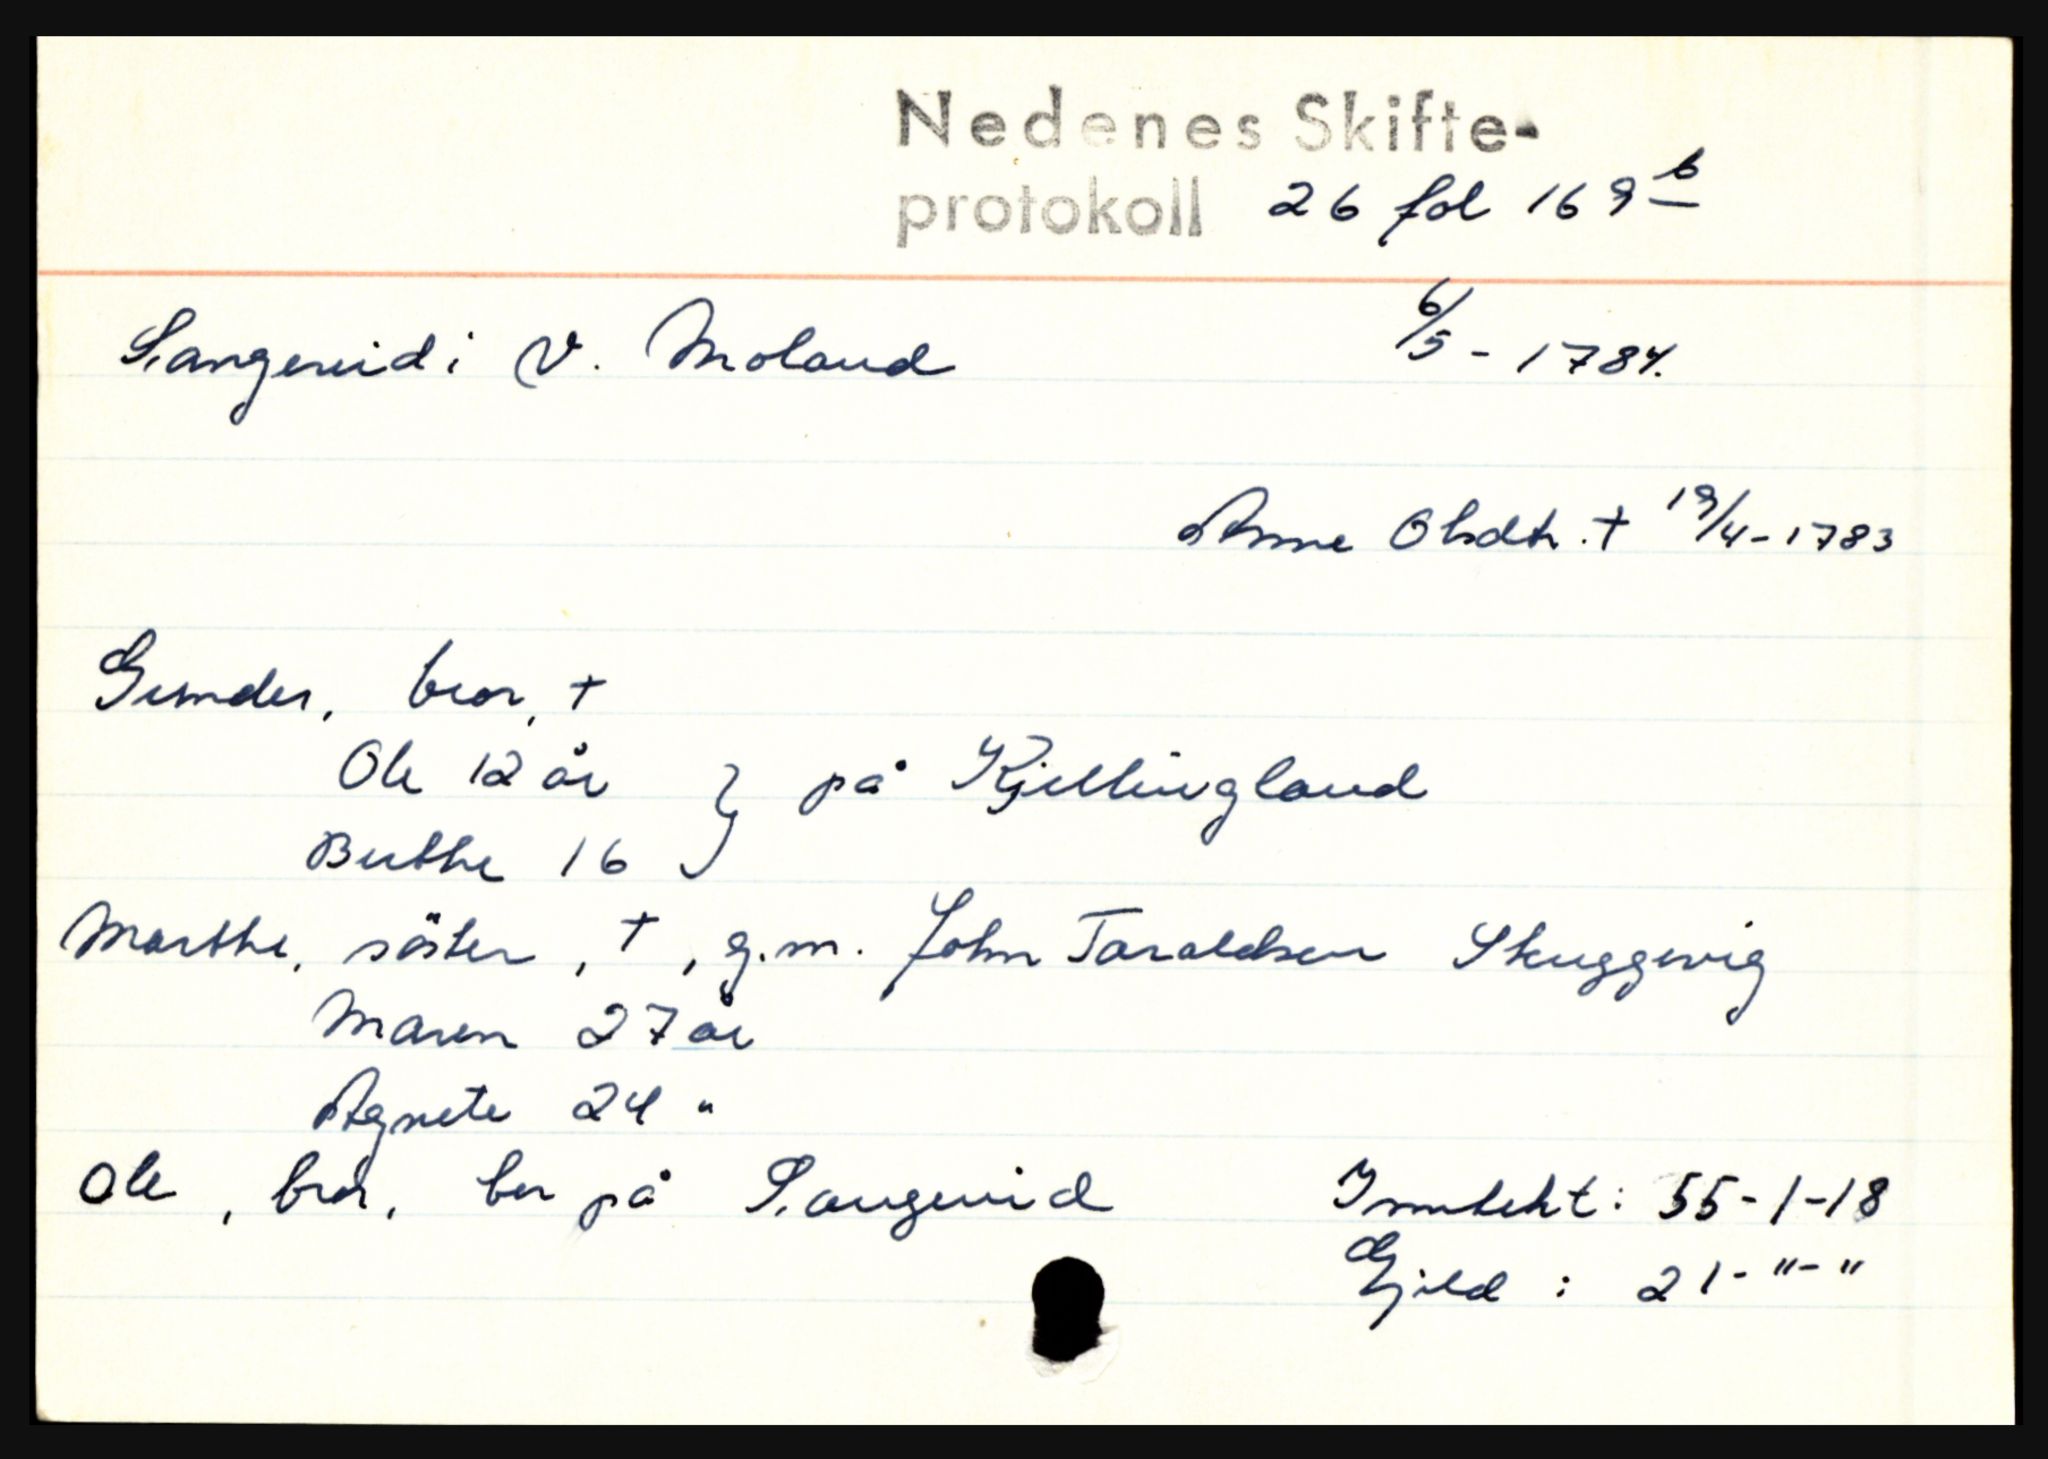 Nedenes Skifte-
protokoll 26 fol 169 b
Sangereid i V. Moland 6/5 - 1784.
Anne Olsdtr. † 19/4 - 1783
Gunder, bror, †
Ole 12 år } på Kjellingland
Berthe 16
Marthe, søster, †, g.m. John Taraldsen Skuggevig
Maren 27 år
Agnete 24 "
Ole, bror, bor på Sangereid Inntekt: 55-1-18
Gjeld: 21-"-"